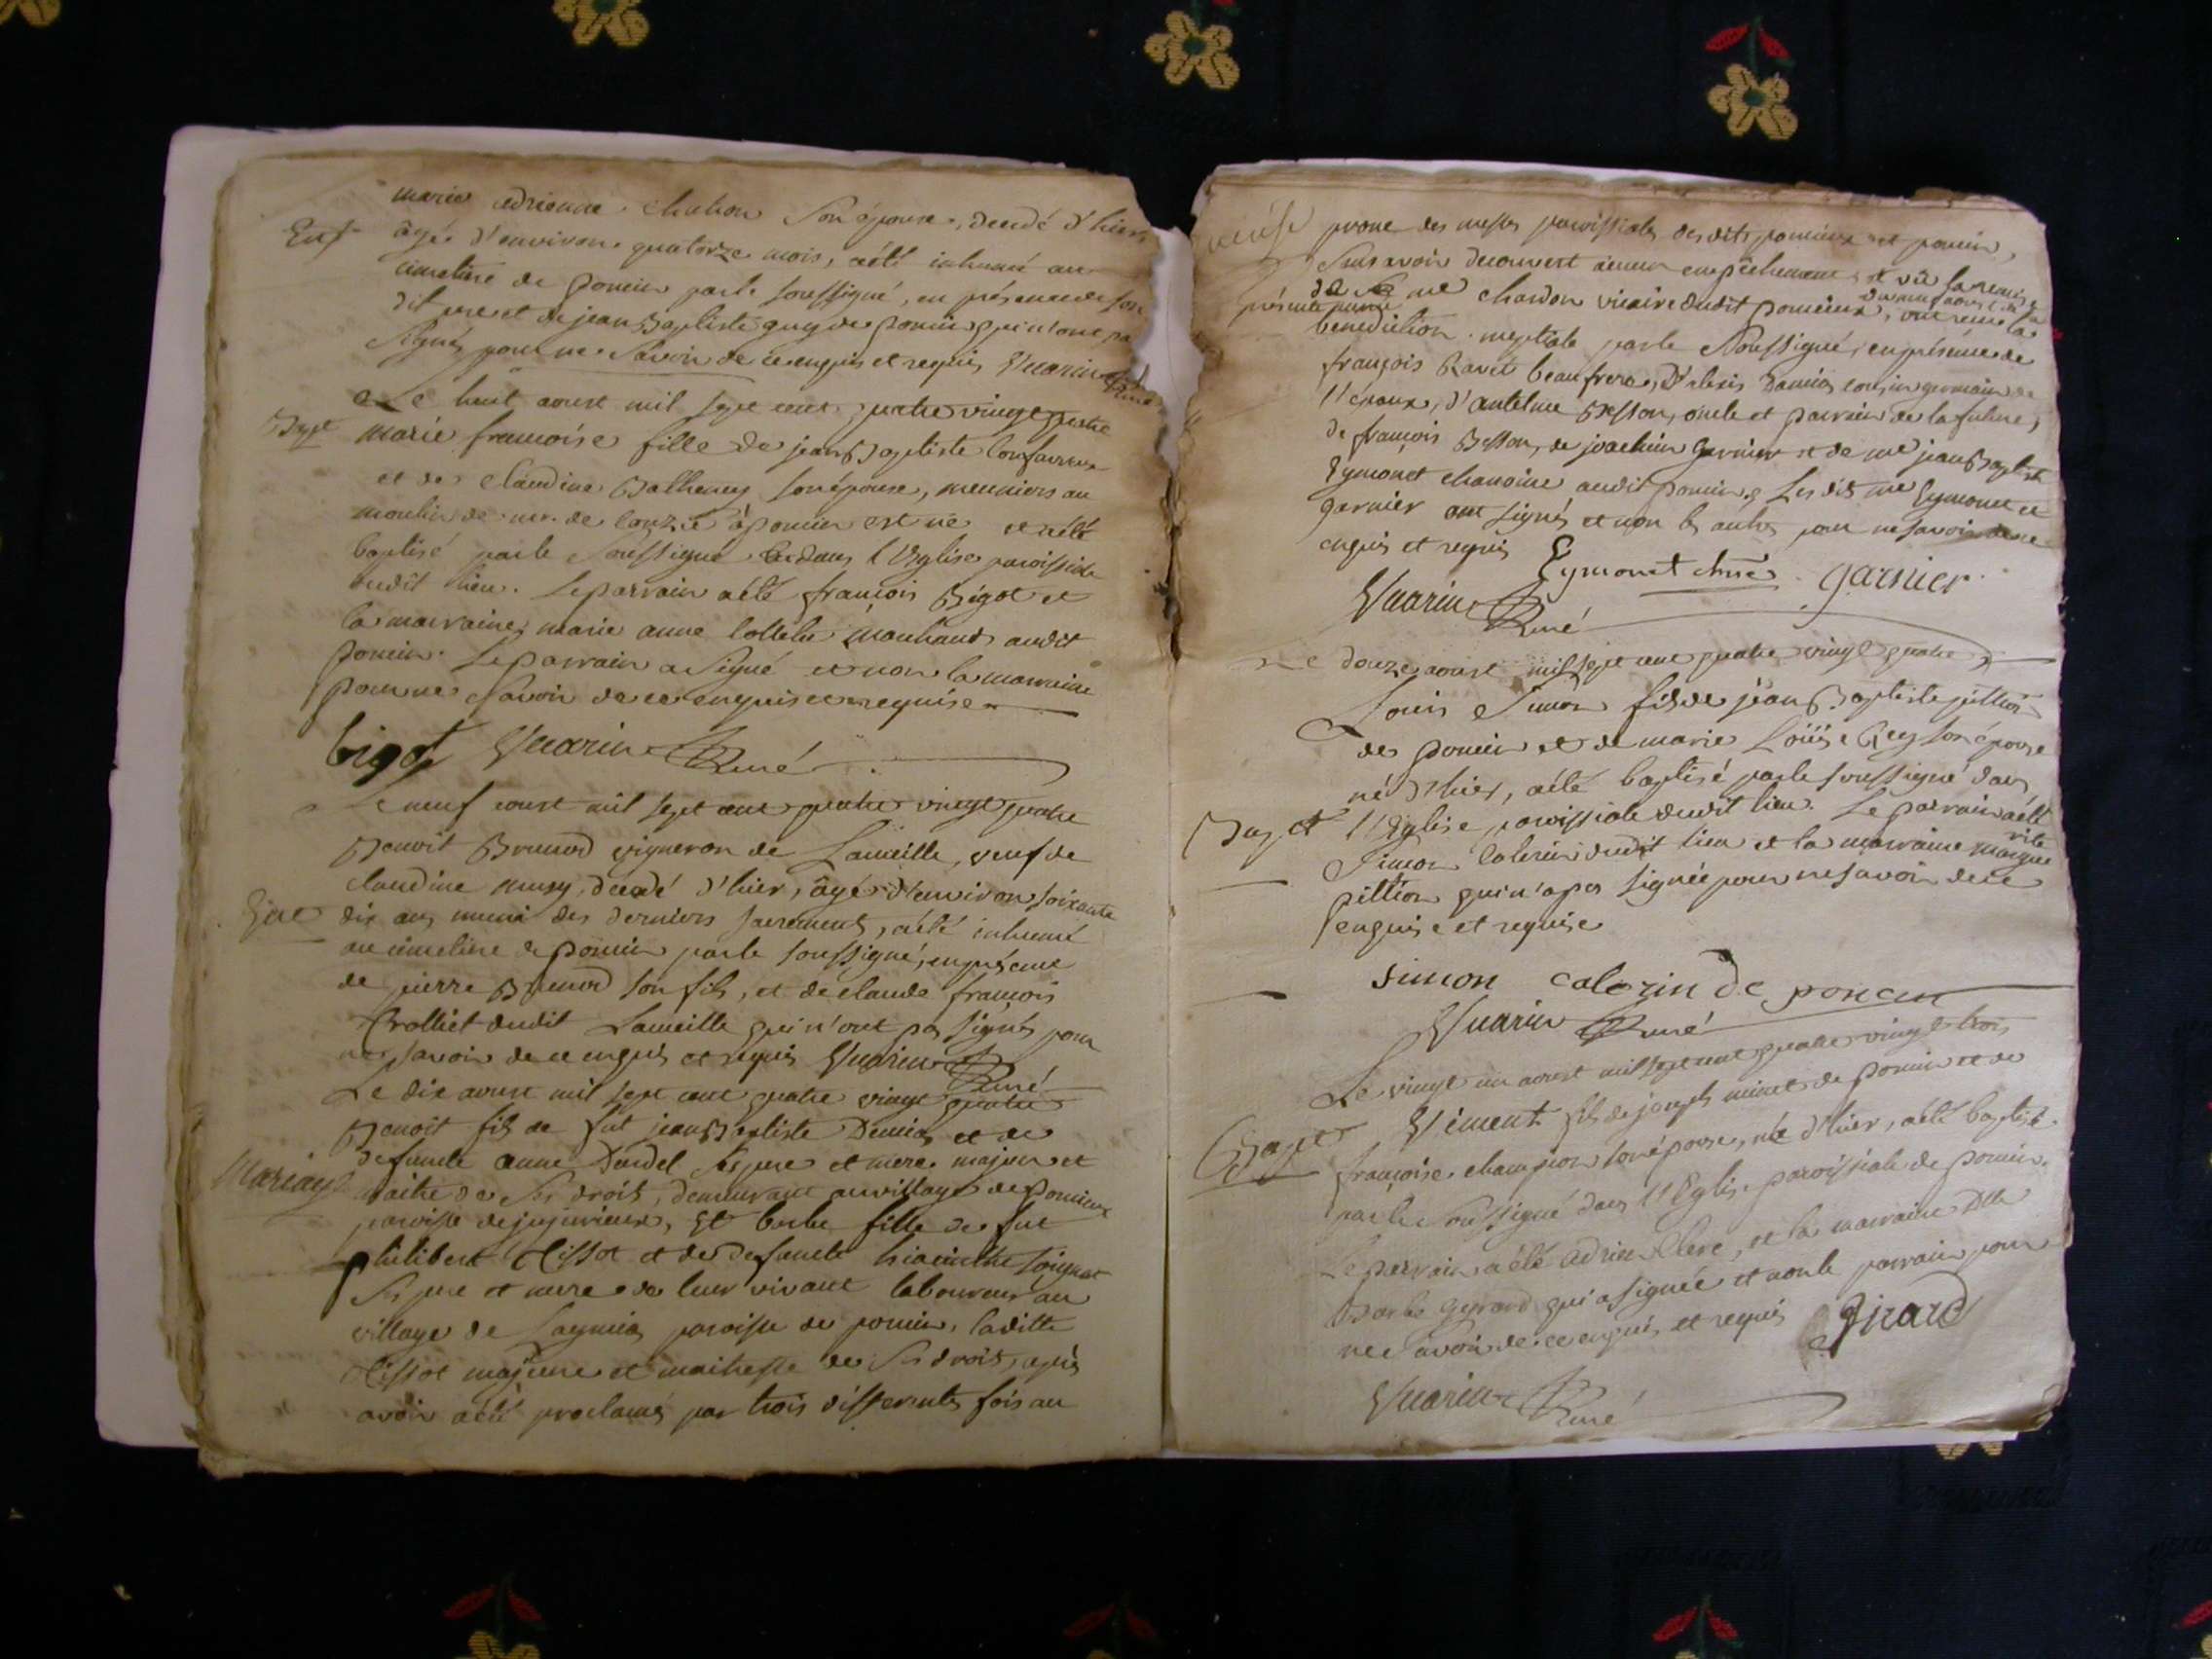 marie adrienne chuhon son épouse, decedé d'hier
Enf âgé d'environ quatorze mois, a été inhumé au
cimetiere de poncin par le soussigné, en présence de son
dit pere et de jean Baptiste guy de poncin qui n'ont pas
signés pour ne savoir de ce enquis et requis Vuarin Curé
Le huit aoust mil sept cent quatre vingt quatre
Bapt marie francoise fille de jean Baptiste
et de Claudine Bathency son épouse, meuniers au
moulin de mr. de à poncin est né et a été
baptisé par le soussigné dans l'Eglise paroissiale
dudit lieu. Le parrain a été françois Bigot et
la marraine marie anne marchand audit
poncin. Le parrain a signé et non la marraine
pour ne savoir de ce enquise et requise
bigot Vuarin Curé
Le neuf aoust mil sept cent quatre vingt quatre
Benoit Brunod vigneron de Lameille, veuf de
claudine musy, decedé d'hier, âgé d'environ soixante
dix ans, muni des derniers sacrements, a été inhumé
au cimetiere de poncin par le soussigné, en présence
de pierre Brunod son fils, et de claude françois
Trolliet dudit Lameille qui n'ont pas signés pour
ne savoir de ce enquis et requis Vuarin Curé
Le dix aoust mil sept cent quatre vingt quatre
Benoit fils de fut jean Baptiste Damias et de
defuncte anne Dardel ses pere et mere majeur et
Mariage maitre de ses droits, demeurant au village de poncieux
paroisse de jujurieux, Et barbe fille de fut
philibert Tissot et de defuncte hiacinthe soignat
ses pere et mere de leur vivant laboureurs au
village de paroisse de poncin, laditte
Tissot majeure et maitresse de ses droits, après
avoir a été proclamés par trois differentes fois au
prone des messes paroissiales desdits poncieux et poncin,
sans avoir decouvert aucun empêchement et vû la remise
de me chardon vicaire dudit poncieux, ont reçu la
benediction nuptiale par le soussigné, en présence de
françois Ravet beaufrere, d'alexis Damias cousin germain de
l'époux, d'antelme Besson, oncle et parrain de la future,
de françois Besson, de joachim garnier et de me jean Baptiste
Eymonet chanoine audit poncin. Les dits me Eymonet et
garnier ont signés et non les autres pour ne savoir de ce
enquis et requis Eymonet chne. garnier
Vuarin Curé
Le douze aoust mil sept cent quatre vingt quatre
Louis Simon fils de jean Baptiste pittion
de poncin et de marie Loüise Rey son épouse
né d'hier, a été baptisé par le soussigné dans
Bapt l'Eglise paroissiale dudit lieu. Le parrain a été
Simon Calorin dudit lieu et la marraine margue
rite
pittion qui n'a pas signée pour ne savoir de ce
enquise et requise
simon calorin de poncin
Vuarin Curé
Le vingt un aoust mil sept cent quatre vingt trois
Bapt Vément fils de joseph minet de poncin et de
françoise champion son épouse, né d'hier, a été baptisé
par le soussigné dans l'Eglise paroissiale de poncin.
Le parrain a été adrien Clere, et la marraine Dlle
Barbe gyrard qui a signée et non le parrain pour
ne savoir de ce enquis et requis Girard
Vuarin Curé